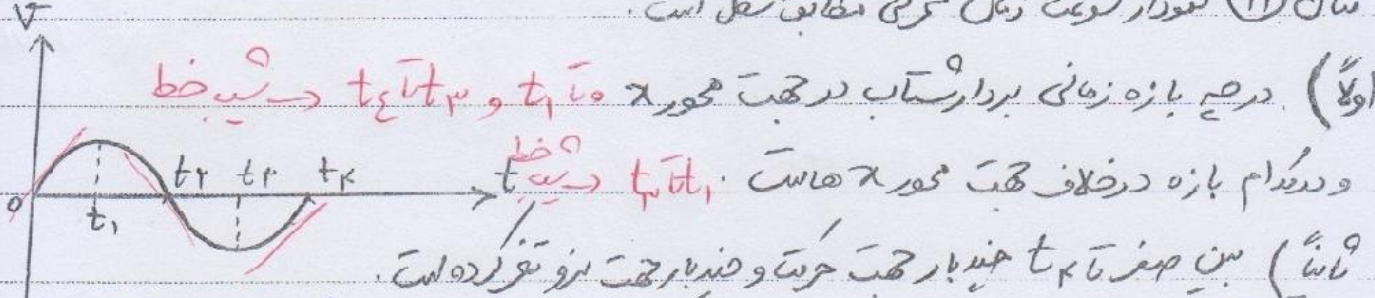 مثال ۱۱) نمودار سرعت زمان متحرکی مطابق شکل است.
اولاً) در چه بازه زمانی بردار شتاب در جهت محور x ۰ تا t۱ و t۳ تا t۴ → شیب خط
و در کدام بازه در خلاف جهت محور x هاست. t۱ تا t۳ → شیب خط
ثانیاً) بین صفر تا t۴ چند بار جهت حرکت و چند بار جهت نیرو تغییر کرده است.
V
t
t۲ t۳ t۴
0
t۱